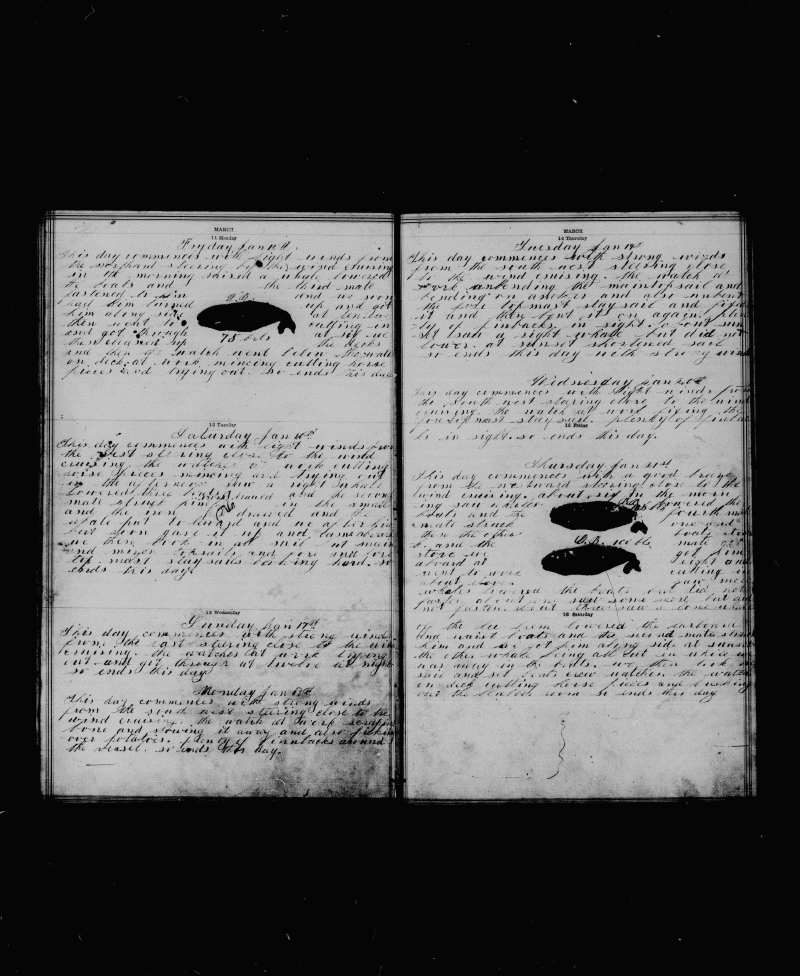 MARCH
11 Monday
Fryday Jan 15th
This day commences with light winds from
the northard steering by the wind cruising
in the morning raised a whale lowered
the boats and the third mate
fastened to him and we soon
had him turned up and got
him along side at ten
then went to cutting in
and got through at six we
75 bbls
then cleaned up the decks
and then one watch went below the watch
on deck at work mincing cutting horse
pieces and trying out. so ends this day
12 Tuesday
Saturday Jan 16th
This day commences with light winds from
the West steering close to the wind
cruising the watches at work cutting
horse pieces mincing and trying out
in the afternoon saw a right whale
lowered three boats and the second
mate struck him in the small
and the iron drawed and the
whale put to and we after him
but soon gave it up and came aboard
we then took in sail at
and topsails and fore and fore
top mast staysails looking hard. so
ends this day
13 Wednesday
Sunday Jan 17th
This day commences with strong winds
from the east steering close to the wind
cruising. the watches at work trying
out and got through at twelve at night
so ends this day
Monday Jan 18th
This day commences with strong winds
from the south west steering close to the
wind cruising. the watch at work scraping
bone and stowing it away and also picking
over potatoes. plenty of finnbacks around
the vessel. so ends this day.
MARCH
14 Thursday
Tuesday Jan 19th
This day commences with strong winds
from the south west steering close
to the wind cruising. the watch at
work unbending the maintopsail and
bending on another and also unbent
the fore topmast stay sail and fixed
it and then bent it on again. plen
ty of finbacks in sight. about sun
set saw a right whale but did not
lower. at sunset shortened sail
so ends this day with strong winds
Wednesday Jan 20th
This day commences with light winds from
the South west steering close to the wind
cruising. the watch at work fixing the
foretopmast staysail. plenty of finbac
15 Friday
ks in sight. so ends this day.
Thursday Jan 21st
This day commences with a good breeze
from the westward steering close to the
wind cruising. about six in the morn
ing saw whales lowered the
boats and the fourth mate
mate struck one and
then the other boats struck
it. and the mate
stove we got him
aboard at eight and
went to work cutting in
about eleven saw more
whales lowered the boats but did not
fasten. about one saw some more but did
not fasten. about three saw a lone whale
16 Saturday
off the lee beam lowered the larboard
and waist boats and the second mate struck
him and we got him along side at sunset
the other whale being all cut in while we
was away in the boats. we then took in
sail and set boats crew watches the watch
on deck cutting horse pieces and
over the blubber room so ends this day